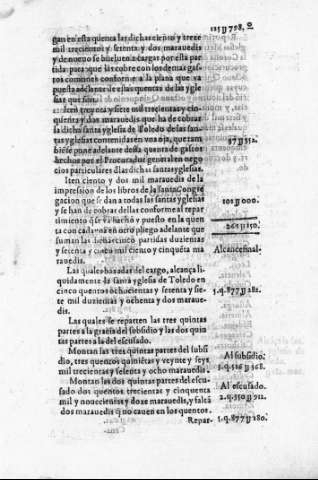 115 y 798. 2
gan en esta quenta las dichas ciento y treze
mil trecientos y setenta y dos marauedis
y de nueuo se bueluen a cargar por esta par
tida para que las cobre con los demas gastos
comunes conforme a la plana que va
puesta adelante destas quentas de las ygle
sias que son.
Iten treynta y siete mil trecientos y cin-
quenta y dos marauedis que ha de cobrar
la dicha santa yglesia de Toledo de las san-
tas yglesias contenidas en vna oja, que tam
bien se pone adelante desta quenta de gastos
hechos por el Procurador general en nego
cios particulares de las dichas santas yglesias.
37 y 352.
Iten ciento y dos mil marauedis de la
impression de los libros de la santa Congre
gacion que se dan a todas las santas yglesias
y se han de cobrar dellas conforme al repar
timiento que va hecho y puesto en la quen
ta con cada vna en otro pliego adelante que
102 y 000.
suman las dichas cinco partidas duzientas
y sesenta y cinco mil ciento y cinquenta ma
rauedis.
265 y 150.
Alcance final.
Las quales baxadas del cargo, alcança li-
quidamente la santa yglesia de Toledo en
cinco quentos ochocientas y setenta y sie-
te mil duzientos y ochenta y dos maraue-
dis.
5.q.877 y 282.
Las quales se reparten las tres quintas
partes a la graçia del subsidio y las dos quin
tas partes a la del escusado.
Montan las tres quintas partes del subsi
dio, tres quentos quinientas y veynte y seys
mil trecientas y sesenta y ocho marauedis.
Al subsidio.
3.q.526 y 368.
Montan las dos quintas partes del escu-
sado dos quentos trecientas y cinquenta
mil y nouecientos y doze marauedis, y faltã
dos marauedis q̃ no cauen en los quentos.
Al escusado.
2.q.350 y 912.
Repar- 5.q.877 y 280.